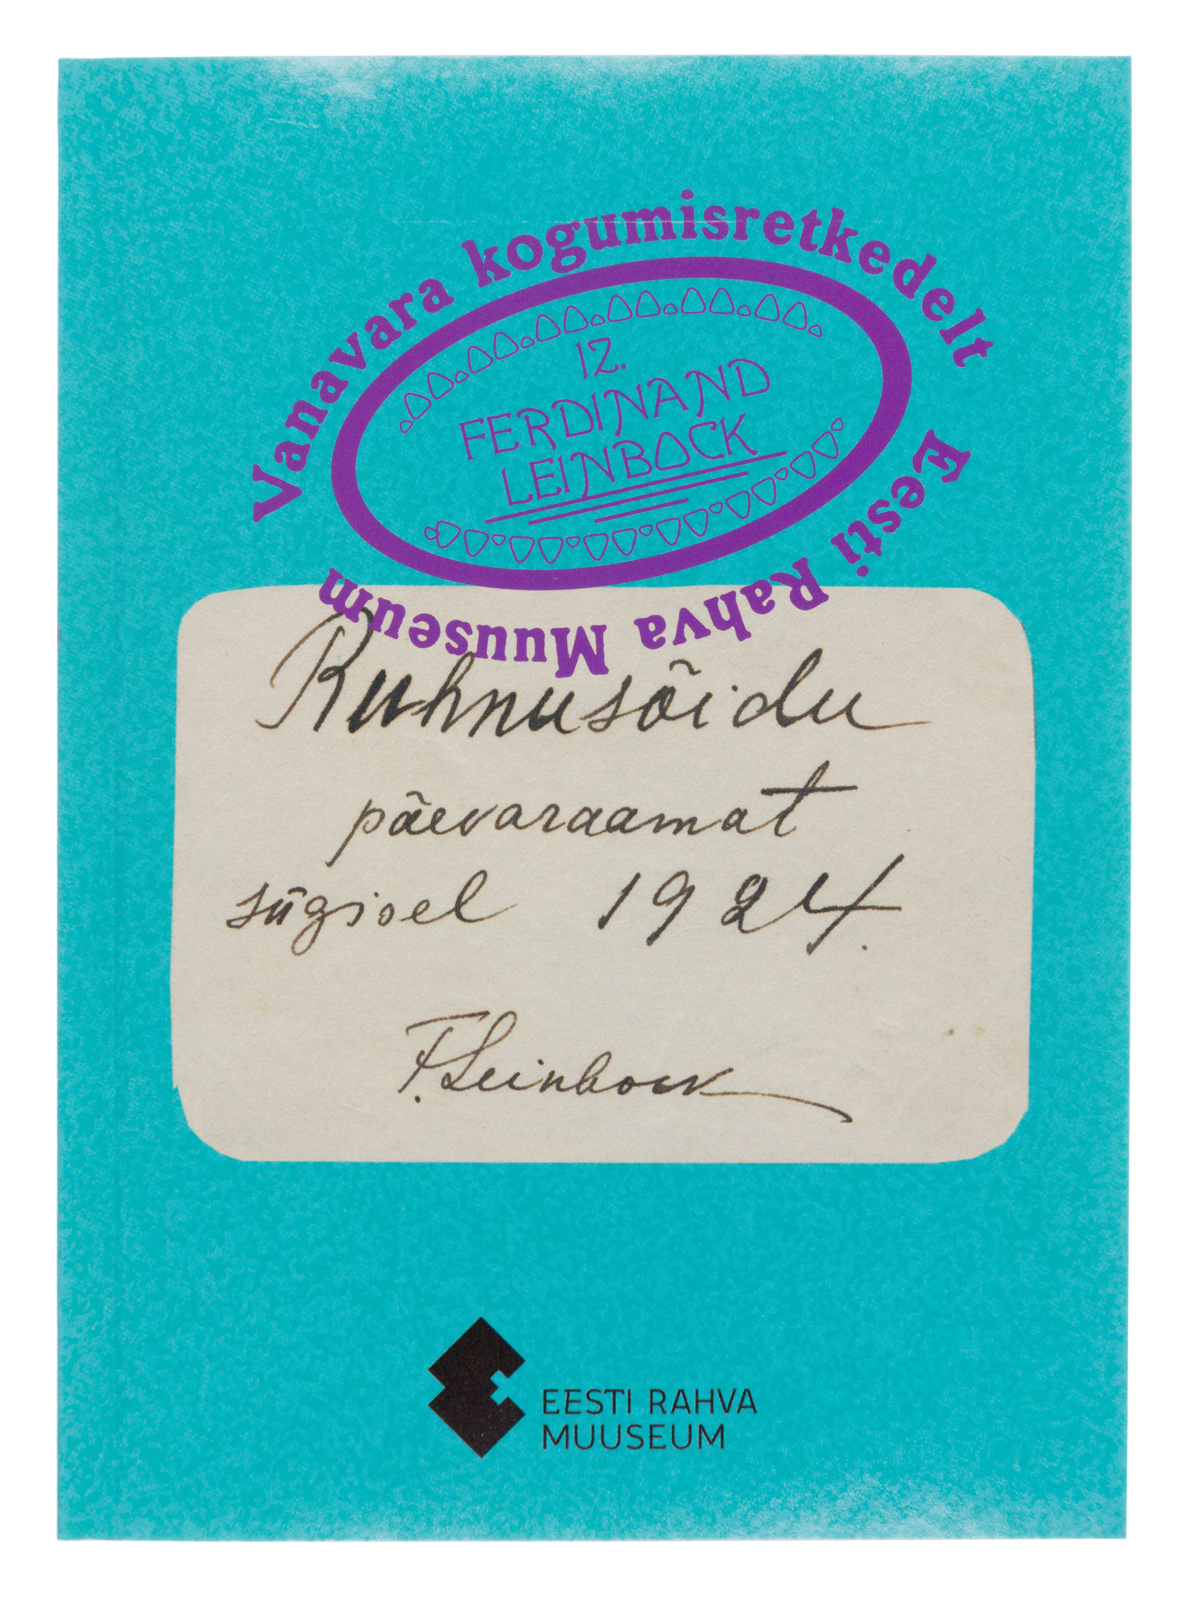 Vanavara kogumisretkedelt
12.
FERDINAND
LEINBOCK
Eesti Rahva Muuseum
Ruhnusõidu
päevaraamat
sügisel 1924.
F. Leinbock
EESTI RAHVA
MUUSEUM